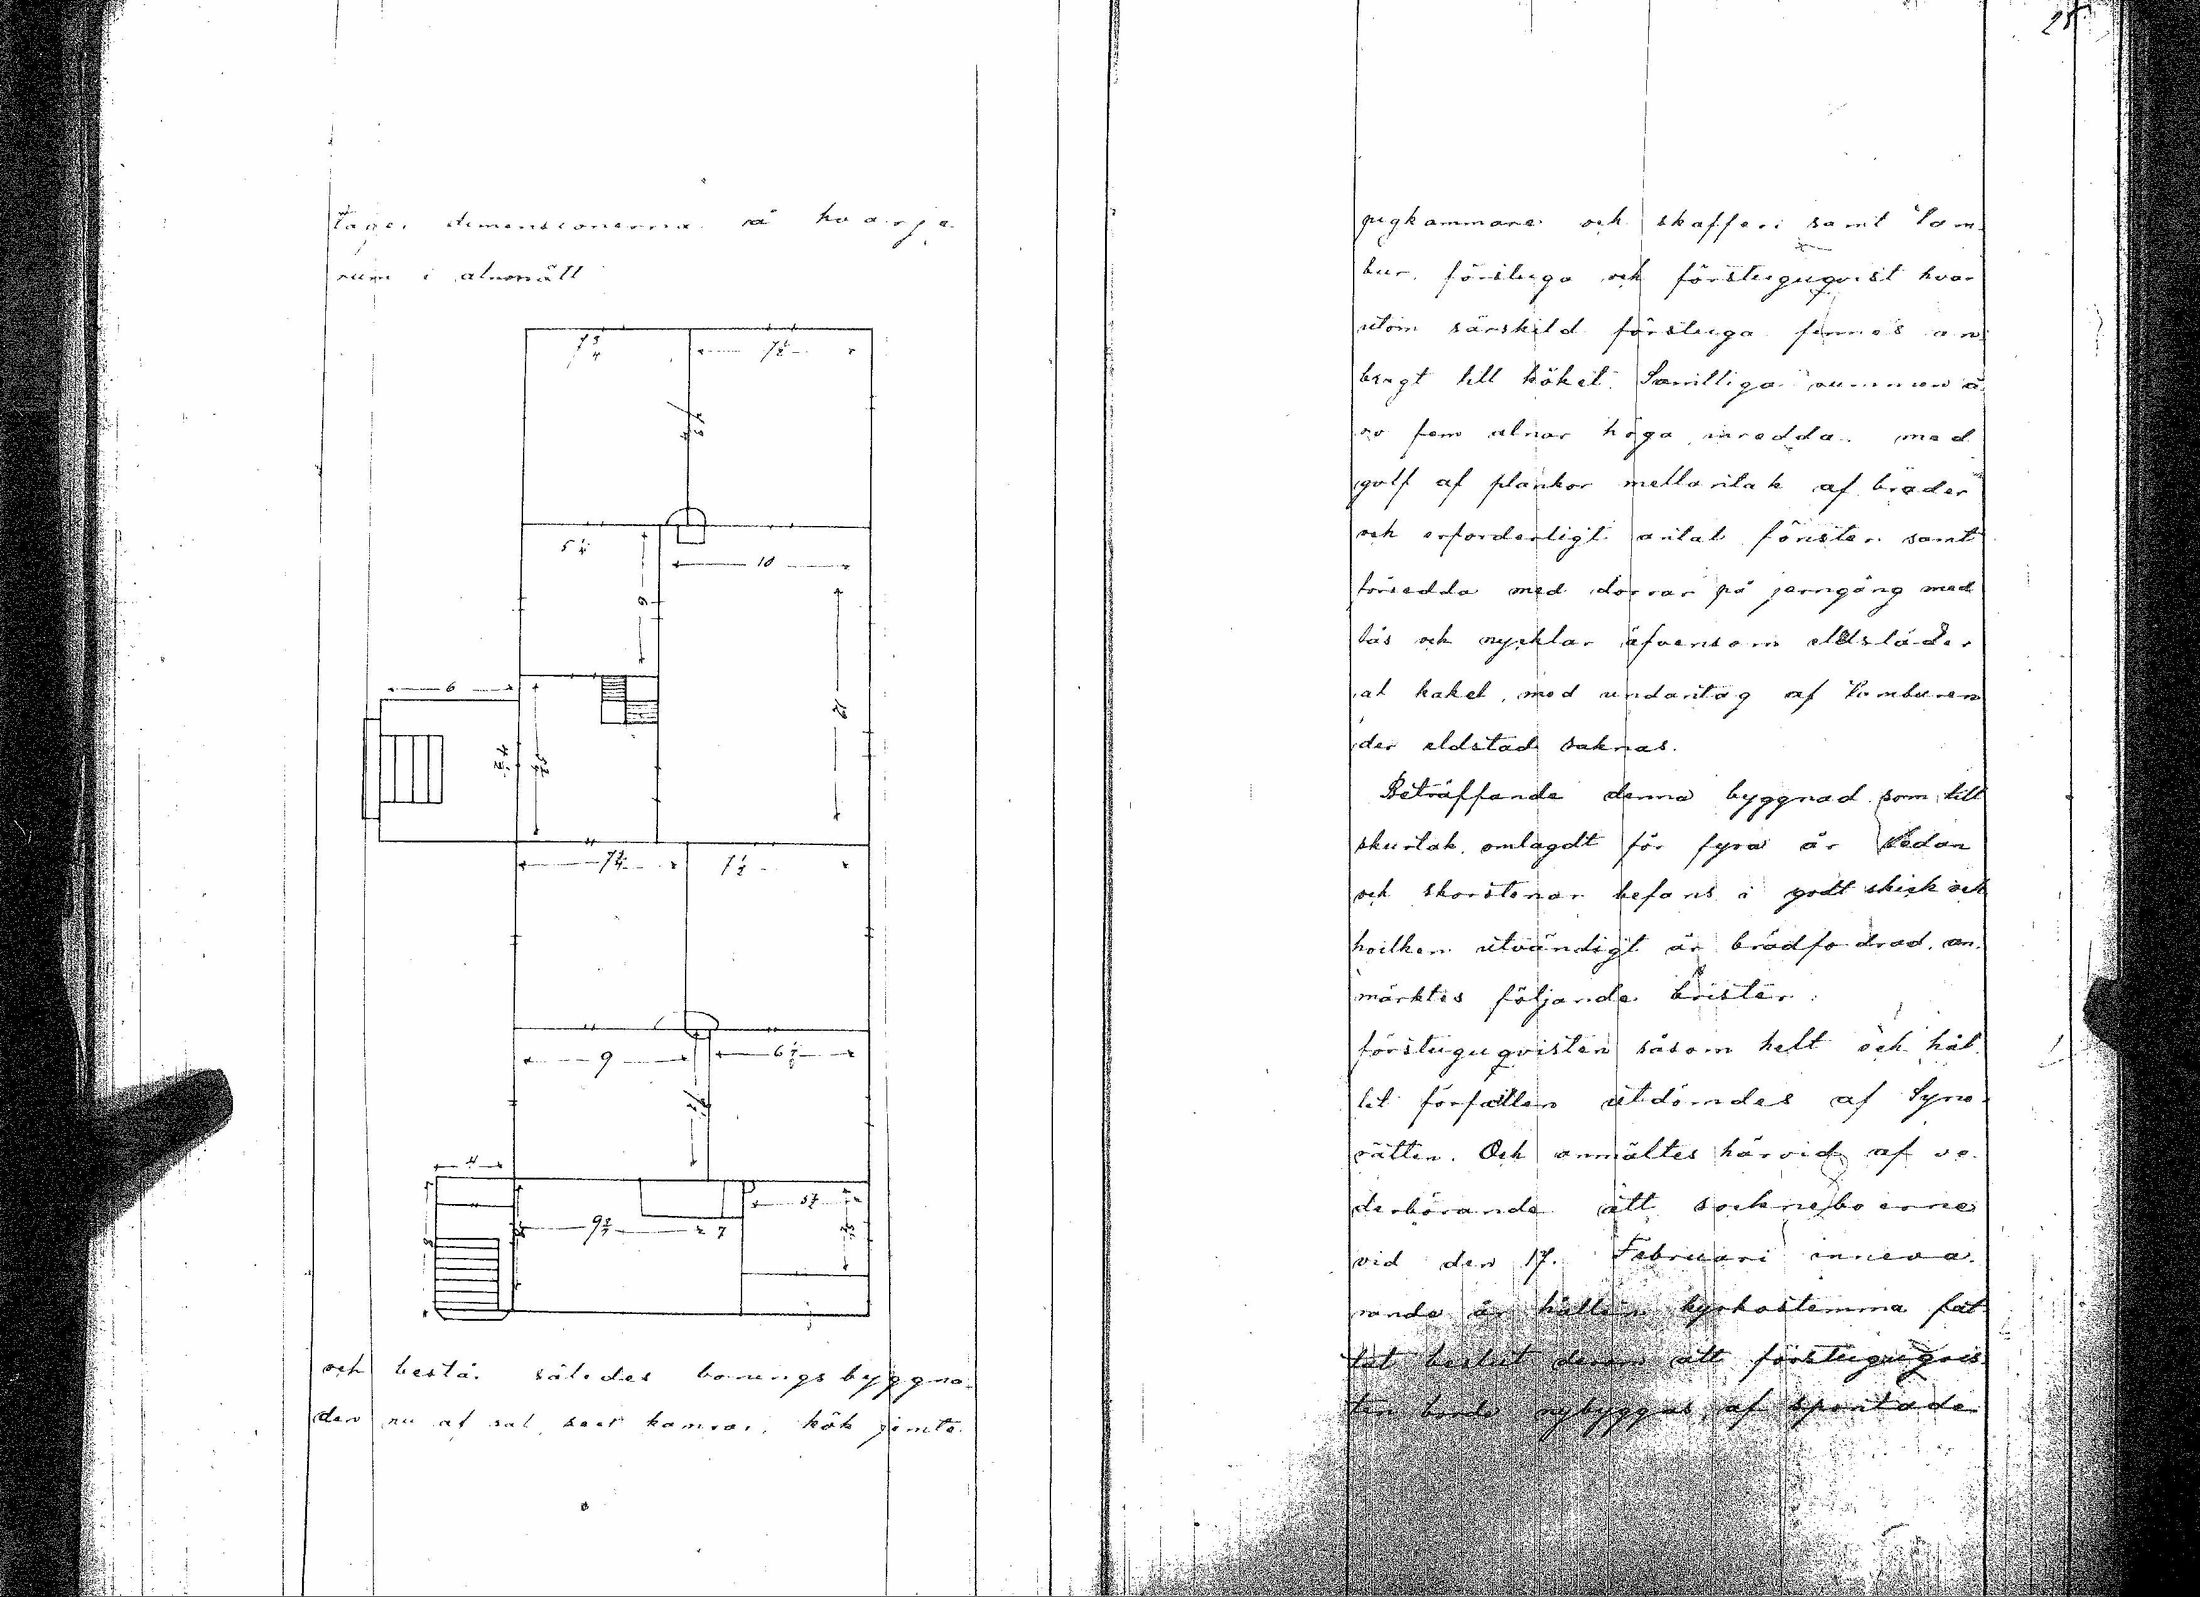 tager dimensionerna å hvarje
rum i alnmått
7 3/4
7 1/2
5 1/4
10
6
6
12
7 3/4
7 1/2
9
6 1/2
4
9 3/4
och bestå. således boningsbyggna-
den nu af sal, sex kamrar, kök jemte
25
pigkammare och skafferi samt Tam-
bur, förstuga och förstuguqvist hvar
utom särskild förstuga finnes an
bragt till köket. Samtliga rummen ä
ro fem alnar höga inredda med
golf af plankor mellantak af bräder
och erforderligt antal fönster samt
försedda med dörrar på jerngång med
lås och nycklar äfvensom eldstäder
af kakel, med undantag af Tamburen
der eldstad saknas.
Beträffande denna byggnad som till
skurtak omlagdt för fyra år sedan
och skorstenar befans i godt skick och
hvilken utvändigt är brädfodrad, an-
märktes följande brister:
förstuguqvisten såsom helt och hål
let förfallen utdömdes af Syne-
rätten. Och anmältes härvid af ve-
derbörande att sockneboerne
vid den 17. Februari inneva-
rande år hållen kyrkostemma fat
tat beslut derom att förstuguqvis
ten borde nybyggas af spontade